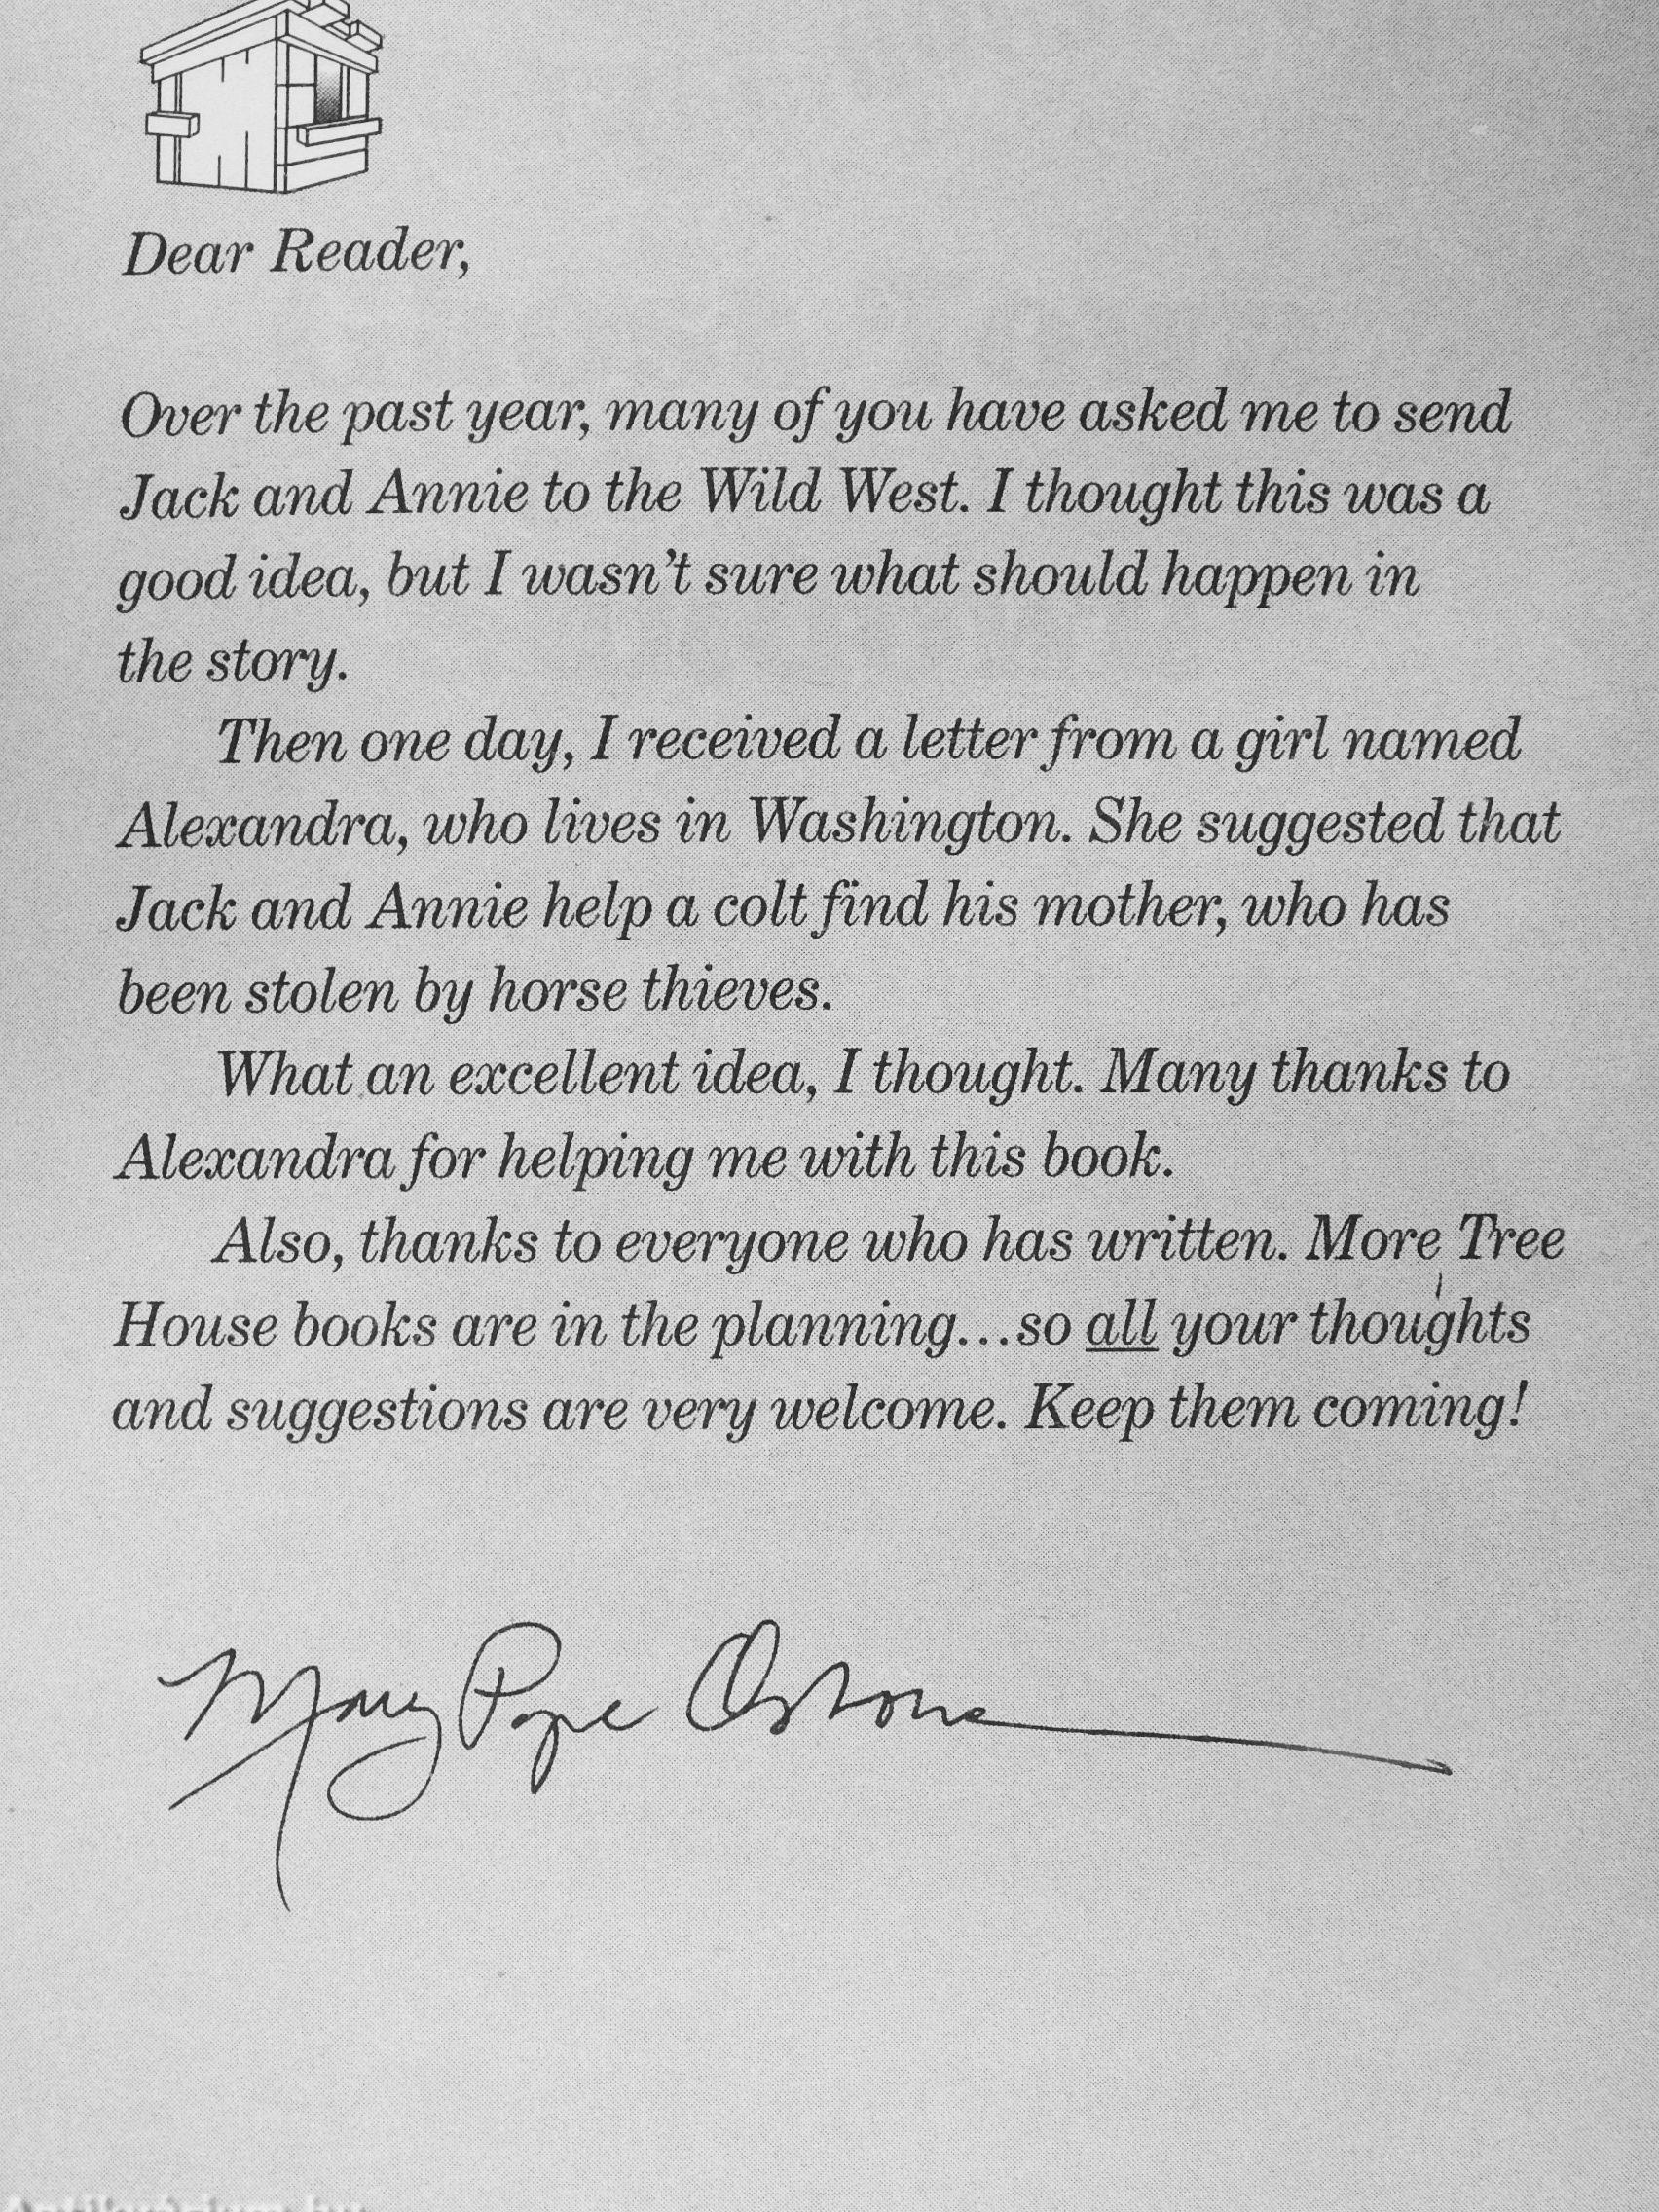 Dear Reader,
Over the past year, many of you have asked me to send
Jack and Annie to the Wild West. I thought this was a
good idea, but I wasn't sure what should happen in
the story.
Then one day, I received a letter from a girl named
Alexandra, who lives in Washington. She suggested that
Jack and Annie help a colt find his mother, who has
been stolen by horse thieves.
What an excellent idea, I thought. Many thanks to
Alexandra for helping me with this book.
Also, thanks to everyone who has written. More Tree
House books are in the planning...so all your thoughts
and suggestions are very welcome. Keep them coming!
Mary Pope Osborne